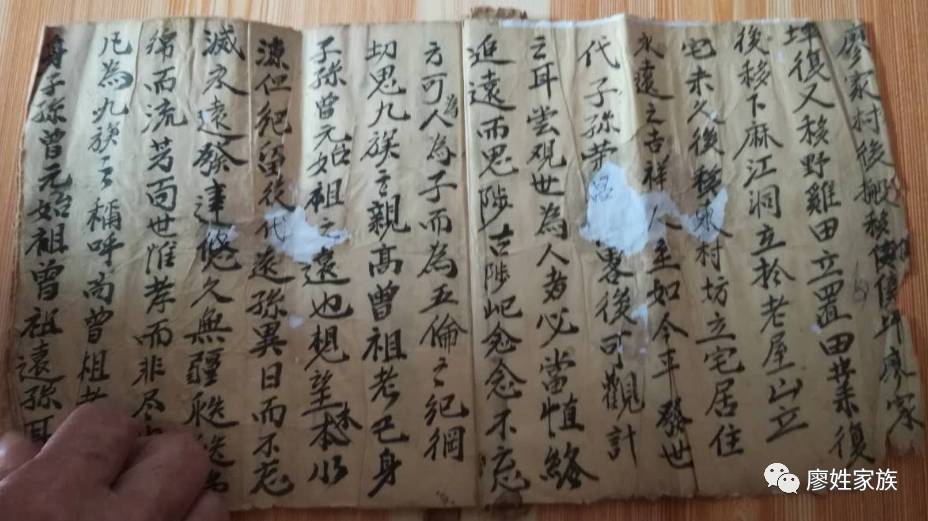 廖家村後搬移 坪廖家
坪復又移野雞田立置田業復
後移下麻江洞立於老屋山立
宅未久後移東村坊立宅居住
永遠之吉祥人至如今年發世
代子孫榮昌畧後可觀計
云耳嘗观世為人者必當慎終
追遠而思陟古陟屺愈愈不忘
方可為人為子而為五倫之纪綱
切思九族之親高曾祖考己身
子孫曾元始祖之遠也想望本以
源但纪留後代远孫異日而不忘
滅永遠發達悠久無疆瓞瓞
綿而流芳百世惟孝而非尽
凡為九族之稱呼高曾祖考
身子孫曾元始祖曾祖遠孫耳
廖姓家族